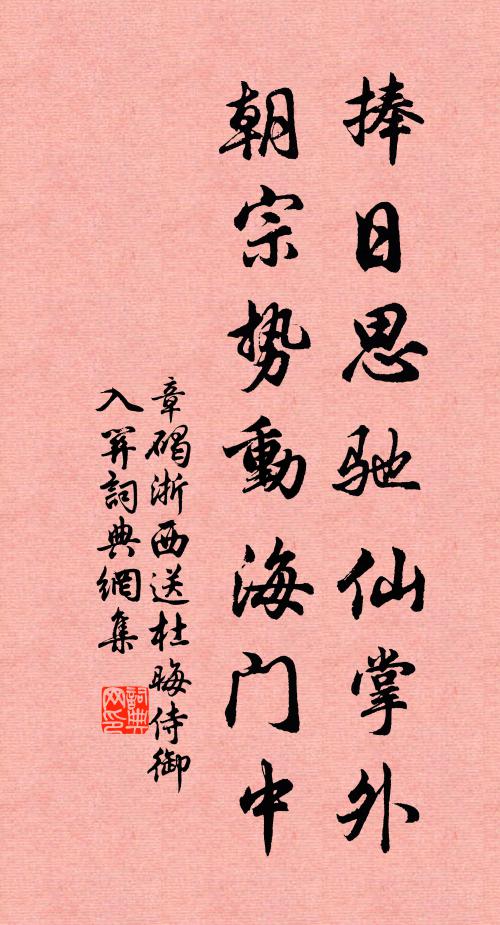 捧日思驰仙掌外
朝宗势動海门中
章碣浙西送杜晦侍御
入関詞典網集
詞典
网印